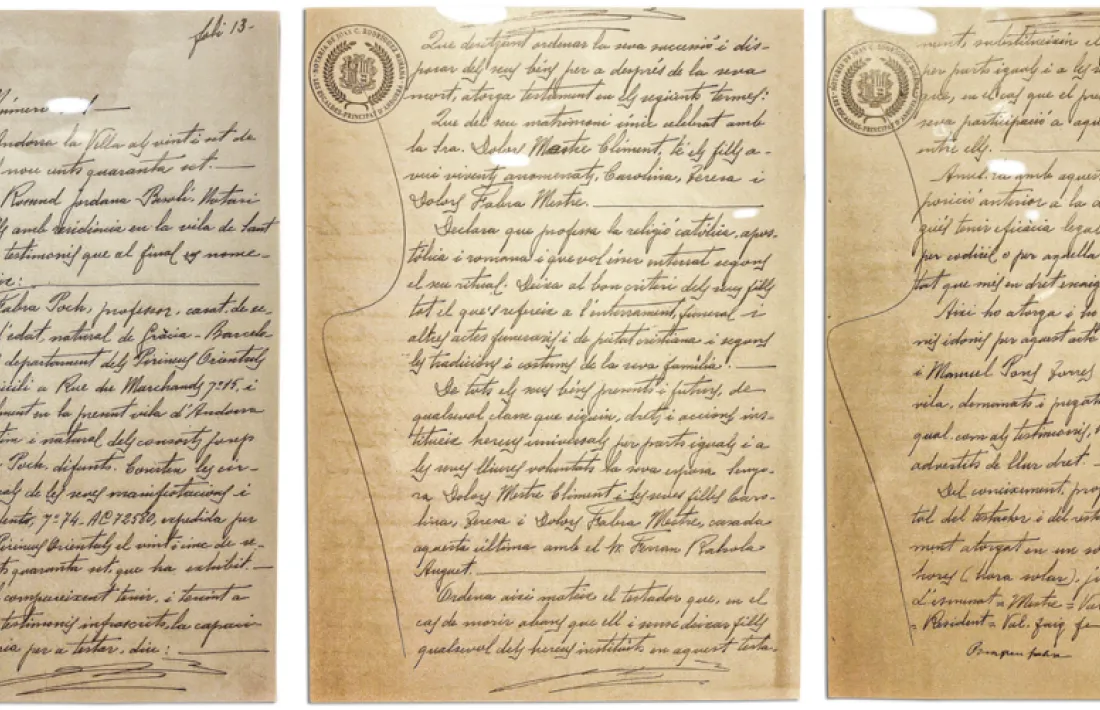 foli 13-
Número
Andorra la Vella als vint-i-set de
nou cents quaranta set.
Rosend Jordana Besoli, Notari
amb residència en la vila de Sant
testimonis que al final es nome-
Fabra Poch, professor, casat, de se-
d'edat, natural de Gràcia - Barcelo
departament dels Pirineus Orientals
a Rue du Marchands, nº 15, i
en la present vila d'Andorra
i natural dels consorts Josep
Poch, difunts. Consten les cir-
de les seves manifestacions i
nº 74- AC72580, expedida per
Pirineus Orientals el vint-i-cinc de se-
quaranta set, que ha exhibit.
compareixent tenir, i tenint a
testimonis infrascrits, la capaci-
per a testar, diu:
NOTARIA DE JOAN C. RODRÍGUEZ MIÑANA
LES ESCALDES - PRINCIPAT D'ANDORRA
Que desitjant ordenar la seva successió i dis-
posar dels seus béns per a després de la seva
mort, atorga testament en els següents termes:
Que del seu matrimoni únic celebrat amb
la Sra. Dolors Mestre Climent, té els fills a-
vui vivents, anomenats, Carolina, Teresa i
Dolors Fabra Mestre.
Declara que professa la religió catòlica, apos-
tòlica i romana i que vol ésser enterrat segons
el seu ritual. Deixa al bon criteri dels seus fills
tot el que's refereix a l'enterrament, funeral i
altres actes funeraris i de pietat cristiana i segons
les tradicions i costums de la seva família.
De tots els seus béns presents i futurs, de
qualsevol classe que siguin, drets i accions, ins-
titueix hereus universals per parts iguals i a
les seves lliures voluntats la seva esposa Senyo-
ra Dolors Mestre Climent i les seves filles Caro-
lina, Teresa i Dolors Fabra Mestre, casada
aquesta última amb el Sr. Ferran Rahola
Auguet.
Ordena així mateix el testador que, en el
cas de morir abans que ell i sense deixar fills
qualsevol dels hereus instituïts en aquest testa-
NOTARIA DE JOAN C. RODRÍGUEZ MIÑANA
LES ESCALDES - PRINCIPAT D'ANDORRA
ment, substitueixin el
per parts iguals i a les
en el cas que el pre
seva participació a aqu
entre ells.
amb aquest
posició anterior a la a
qués tenir eficàcia legal
per codicil o per aquella
tat que més en dret
Així ho atorga i ho
nis idonis per aquest acte
i Manuel Pons Torres
vila, demanats i pregats
qual, com als testimonis,
advertits de llur dret.
Del coneixement, prof
tal del testador i del
ment atorgat en un so
hores (hora solar),
L'esmenat = Mestre = Val
= Resident = Val.
Pompeu Fabra